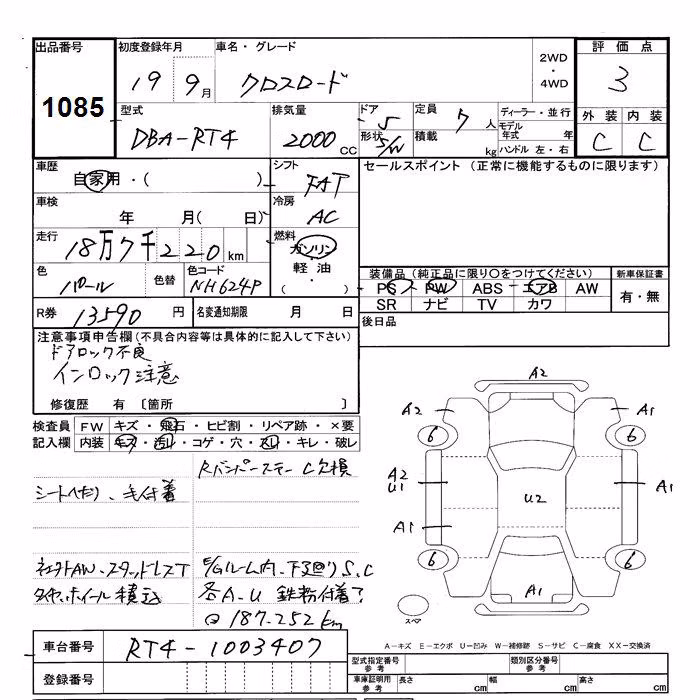 出品番号 初度登録年月 車名・グレード 2WD・4WD 評価点
1085 19 9月 クロスロード 3
型式 排気量 ドア 5 定員 7人 ディーラー・並行 外装 内装
DBA-RT4 2000 CC 形状 S/W 積載 kg モデル年式 年 ハンドル 左・右 C C
車歴 シフト セールスポイント (正常に機能するものに限ります)
自家用・( ) FAT
車検 冷房
年 月( 日) AC
走行 燃料
18万7千220km ガソリン
軽油
・( )
色 色替 色コード
パール NH624P
装備品 (純正品に限り○をつけてください) 新車保証書
PS PW ABS エアB AW 有・無
SR ナビ TV カワ
R券 13590円 名変通知期限 月 日 後日品
注意事項申告欄 (不具合内容等は具体的に記入して下さい)
ドアロック不良
インロック注意
修復歴 有 〔箇所 〕
検査員 FW キズ・飛石・ヒビ割・リペア跡・×要
記入欄 内装 キズ・汚レ・コゲ・穴・スレ・キレ・破レ
Rバンパーステー C欠損
シートへたり、毛付着
AW、スタッドレスT
タイヤ、ホイール積込
E/Gルーム内、下廻りS、C
各A、U 鉄粉付着了
187.252km
A2
A2 A1
6 6
A2
U1 A1
U2
A1
6 6
A1
スペア
車台番号 RT4-1003407
登録番号
A-キズ E-エクボ U-凹み W-補修跡 S-サビ C-腐食 XX-交換済
型式指定番号 参考 類別区分番号 参考
車庫証明用 参考 長さ cm 幅 cm 高さ cm